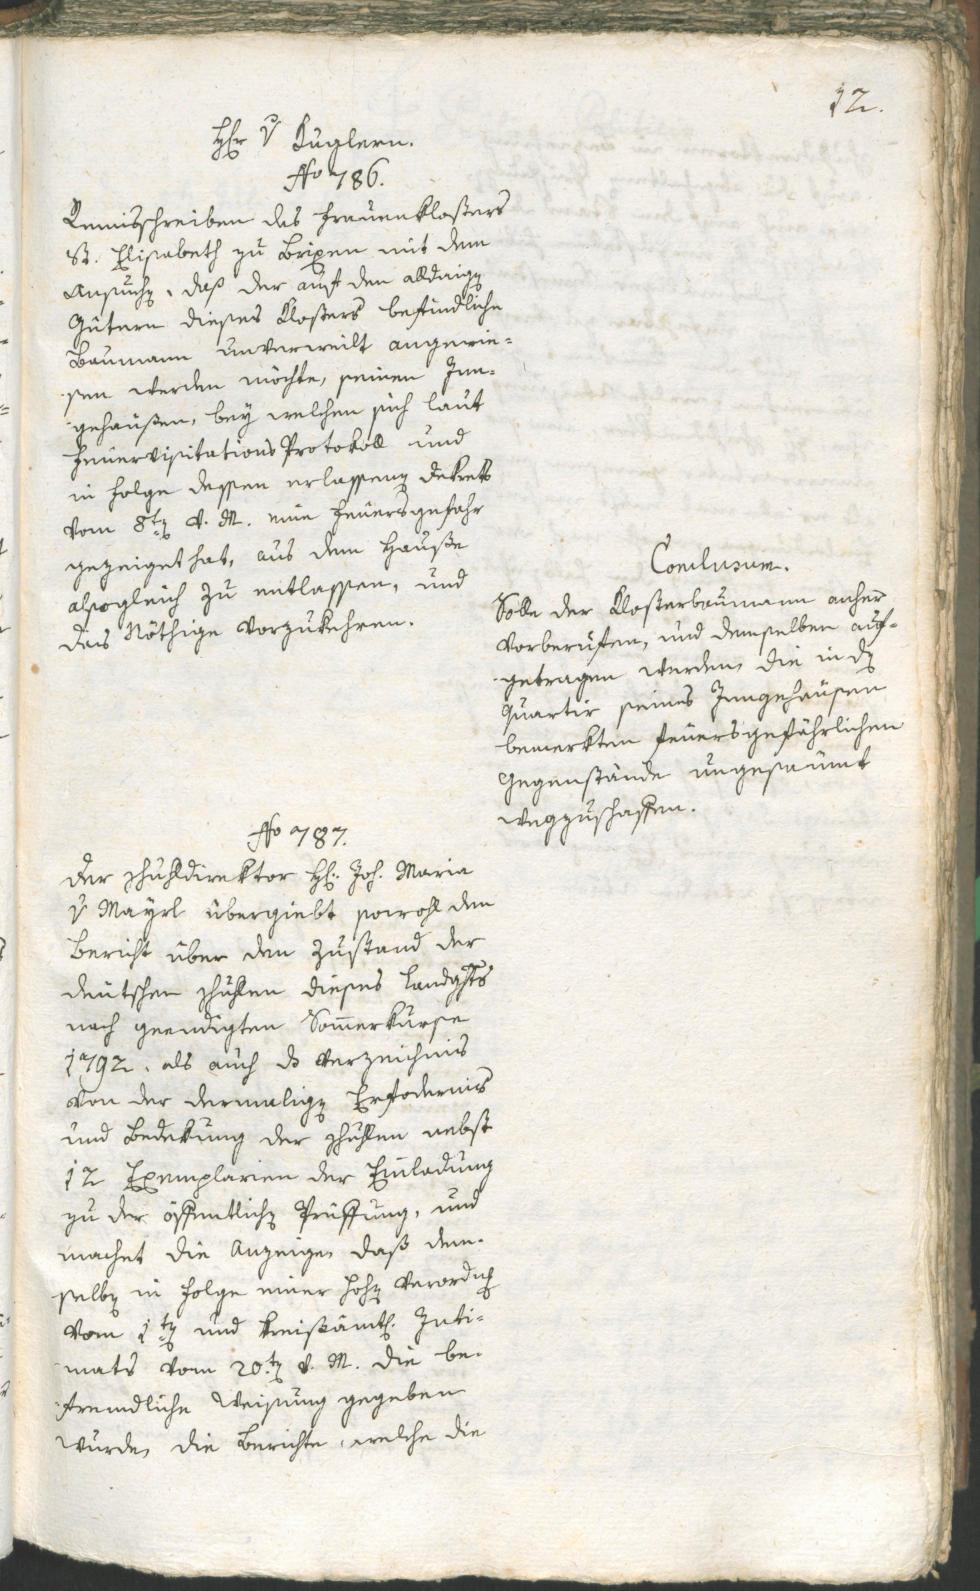 12.
Hr v Kuglern.
No 786.
Remisschreiben des Frauenklosters
St. Elisabeth zu Brixen mit dem
Ansuchen, daß der auf den alldaign
Gütern dieses Klosters befindliche
Baumann unverweilt angewie=
sen werden möchte, seinen Inn=
gehäusen, bey welchen sich laut
Feuervisitations Protokoll und
in Folge dessen erlassenen Dekrets
vom 8ten v. M. eine Feuersgefahr
gezeiget hat, aus dem Hause
alsogleich zu entlassen, und
das Nöthige vorzukehren.
Conclusum.
Solle der Klosterbaumann anher
vorberufen, und demselben auf=
getragen werden, die in dem
Quartir seines Inngehäusen
bemerkten feuersgefährlichen
Gegenstände ungesäumt
wegzuschaffen.
No 787.
Der Schuldirektor H: Joh. Maria
v Mayrl übergiebt sowohl den
Bericht über den Zustand der
deutschen Schulen dieses Landghts
nach geendigten Som̅erkurse
1792. als auch das Verzeichnis
von der dermaligen Erfodernis
und Bedekung der Schulen nebst
12 Exemplarien der Einladung
zu der öffentlichen Prüffung, und
machet die Anzeige, daß dem=
selben in Folge einer hohen Verordng
vom 1ten und kreisämtl. Inti=
mats vom 20ten v. M. die be=
fremdliche Weisung gegeben
wurde, die Berichte, welche die